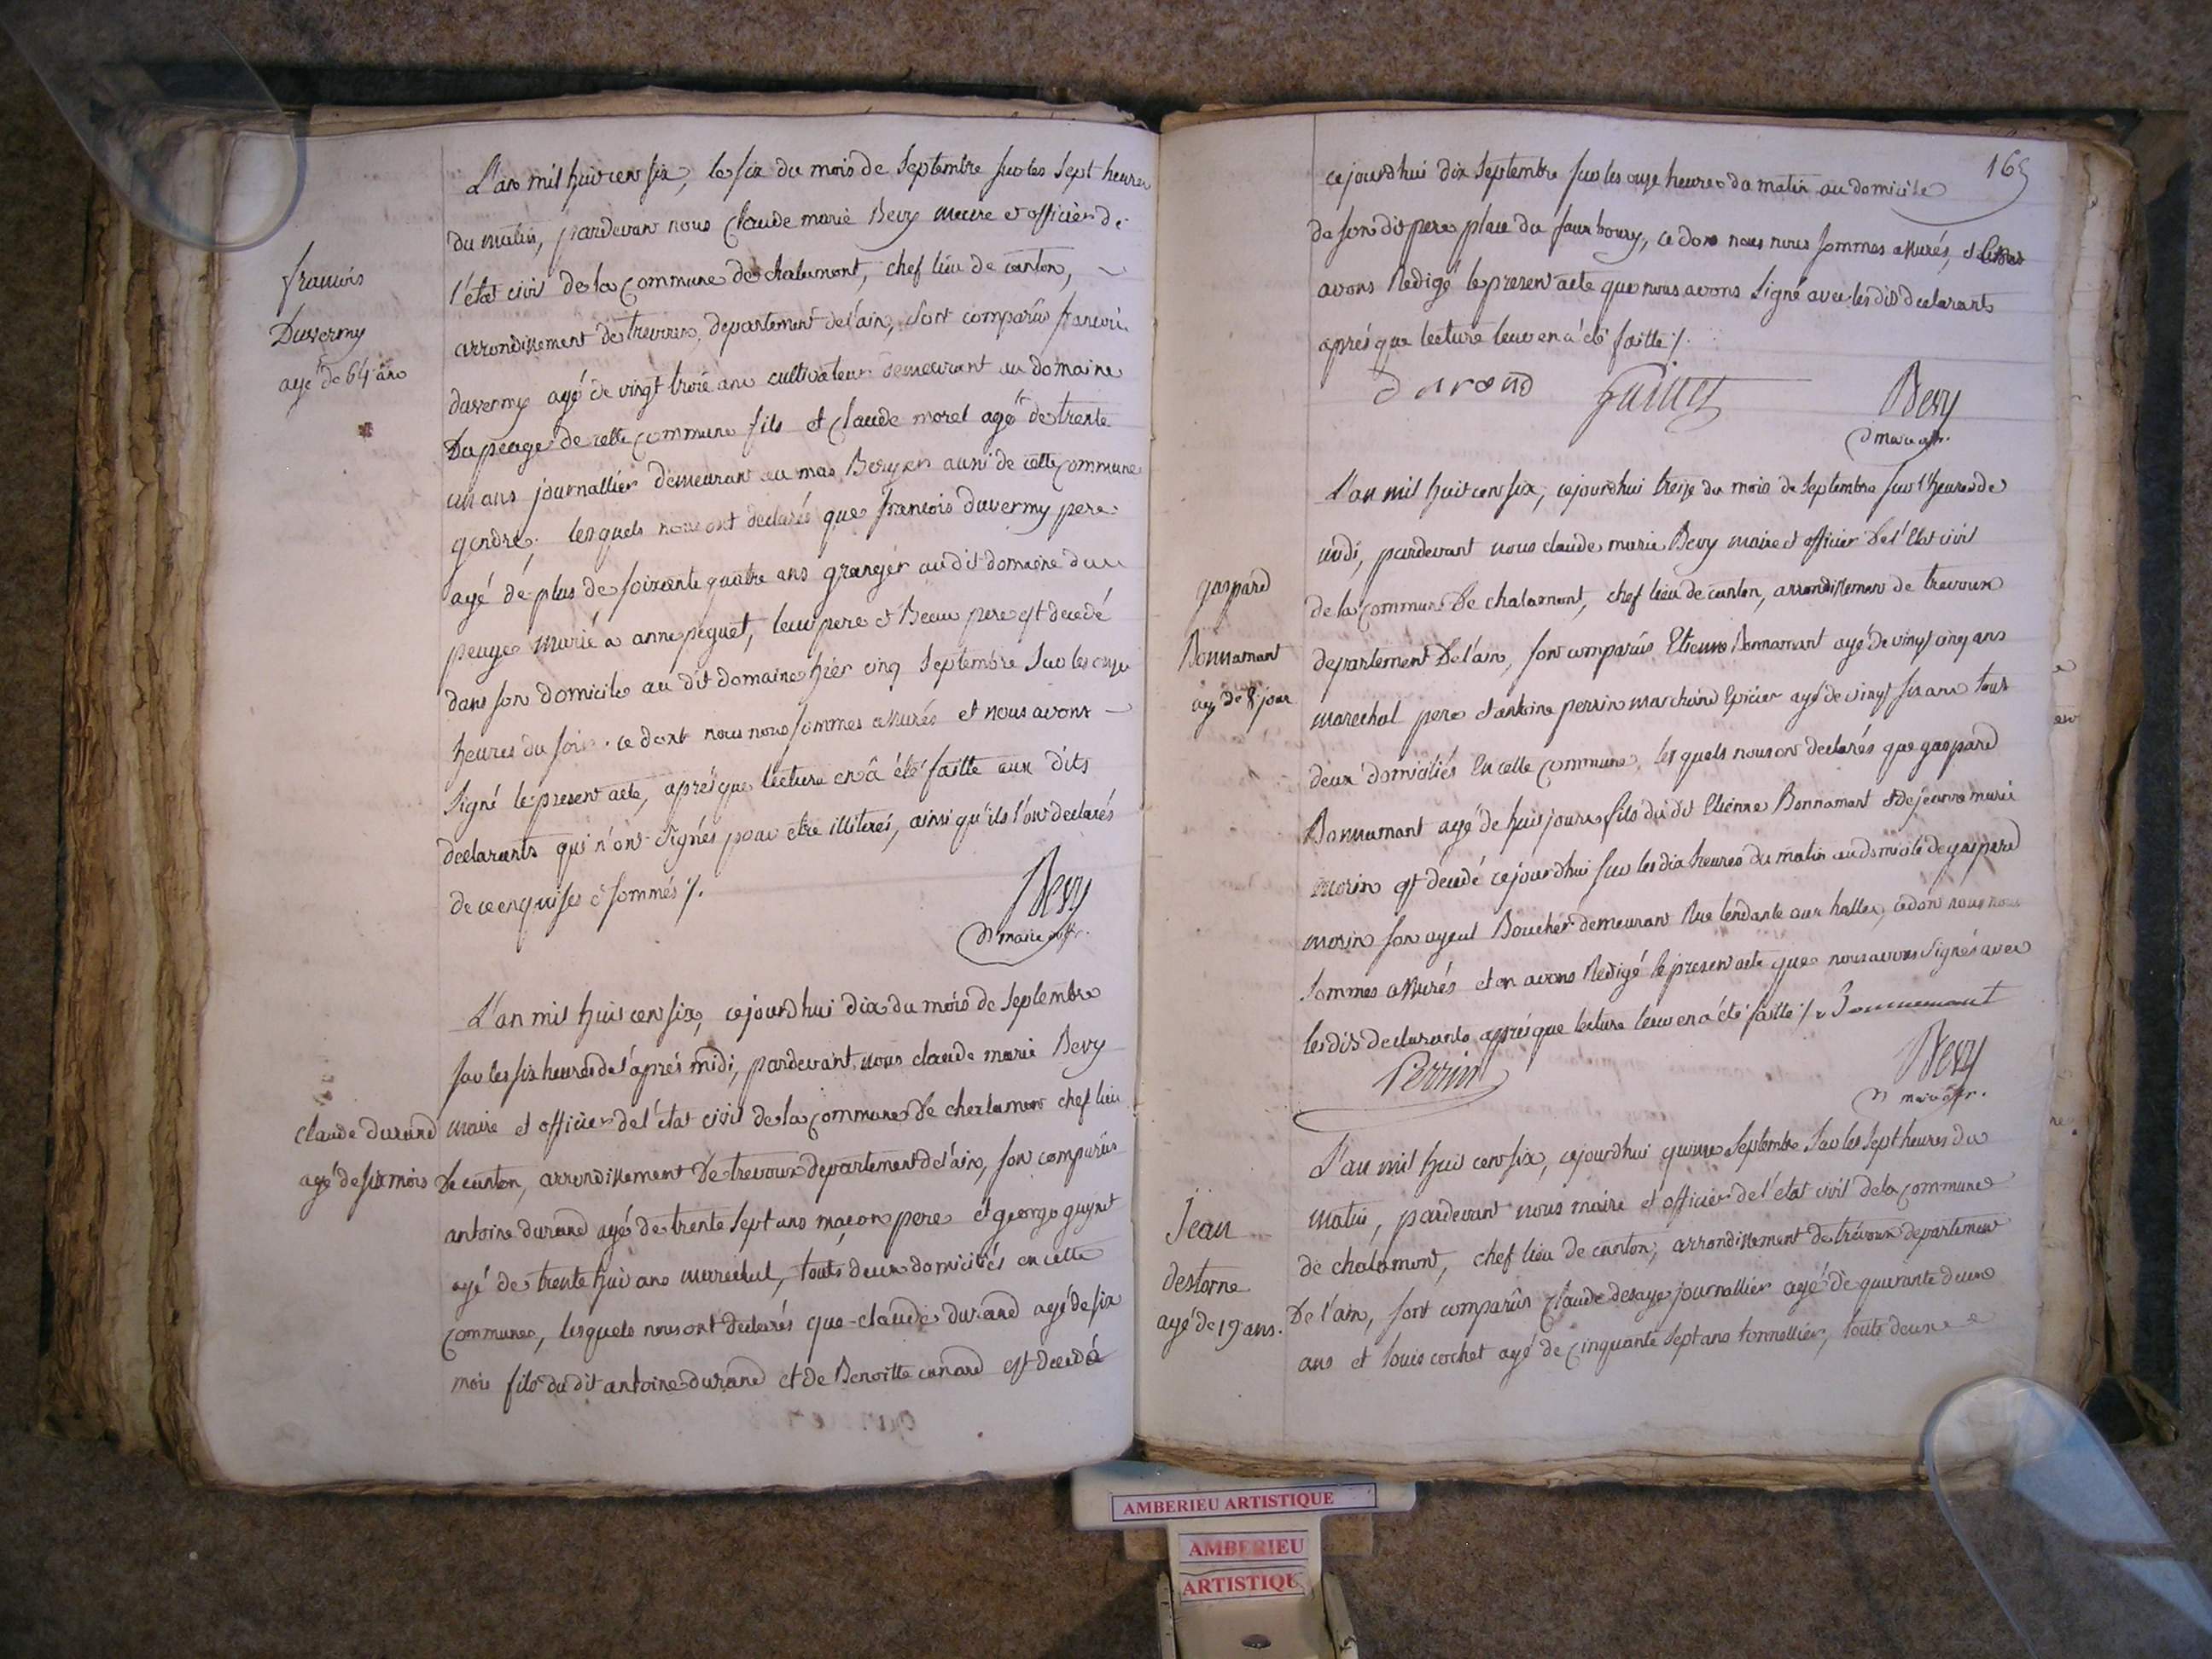 L'an mil huit cen six, le six du mois de Septembre sur les Sept heures
du matin, pardevant nous Claude marie Bevy maire et officier de
l'état civil de la Commune de chalamont, chef lieu de canton,
arrondissement de trevoux, departement de l'ain, sont comparus francois
françois
Duvermy
agé de 64 ans
duvermy agé de vingt trois ans cultivateur demeurant au domaine
Du peage de cette Commune fils et Claude morel agé de trente
un ans journallier demeurant au mas aussi de cette Commune
gendre, lesquels nous ont declarés que francois duvermy pere
agé de plus de soixante quatre ans granger au dit domaine du
peage marié a anne peguet, leur pere et Beau pere est decedé
dans son domicile au dit domaine hier cinq Septembre Sur les onze
heures du soir. ce dont nous nous sommes assurés et nous avons
Signé le present acte, aprés que lecture en â été faitte aux dits
declarants qui n'ont Signés pour etre illiterés, ainsi qu'ils l'ont declarés
de ce enquises et sommés /.
Bevy
maire
L'an mil huit cen six, cejourdhui dix du mois de Septembre
sur les six heures de l'aprés midi, pardevant nous claude marie Bevy
claude durand
agé de six mois
maire et officier de l'état civil de la Commune De chalamont chef lieu
De canton, arrondissement De trevoux departement de l'ain, son comparus
antoine durand agé de trente Sept ans maçon pere et george guynet
agé de trente huit ans marechal, touts deux domiciliés en cette
Commune, lesquels nous ont declarés que claude durand agé de six
mois fils du dit antoine durand et de Benoitte canard est decedé
165
cejourdhui dix Septembre sur les onze heures du matin au domicile
de son dit pere place du faux bourg, ce dont nous nous sommes assurés, et
avons Redigé le present acte que nous avons Signé avec les dits declarants
aprés que lecture leur en à été faitte /.
durand
Bevy
maire
L'an mil huit cen six, cejourdhui treize du mois de Septembre sur l'heure de
midi, pardevant nous claude marie Bevy maire et officier De l'Etat civil
gaspard
Bonnamant
agé de 8 jour
de la Commune De chalamont, chef lieu de canton, arrondissement de trevoux
departement De l'ain, son comparus Etienne Bonnamant agé de vingt cinq ans
marechal pere et antoine perrin marchand Epicier agé de vingt six ans tous
deux domiciliés En cette Commune, lesquels nous ont declarés que gaspard
Bonnamant agé de huit jours fils du dit Etienne Bonnamant et de jeanne marie
morin est decedé cejourdhui sur les dix heures du matin au domicile de gaspard
morin son ayeul Boucher demeurant Rue tendante aux halles, ce dont nous nous
sommes assurés et en avons Redigé le present acte que nous avons Signés avec
les dits declarants aprés que lecture leur en a été faitte /. Bonnemant
Perrin
Bevy
maire
L'an mil huit cen six, cejourdhui quinze Septembre Sur les Sept heures du
matin, pardevant nous maire et officier de l'état civil de la Commune
Jean
destorne
agé de 19 ans.
de chalamont, chef lieu de canton, arrondissement de trévoux departement
De l'ain, sont comparûs Claude desaye journallier agé de quarante deux
ans et louis cochet agé de Cinquante Sept ans tonnellier, touts deux
AMBERIEU ARTISTIQUE
AMBERIEU
ARTISTIQUE